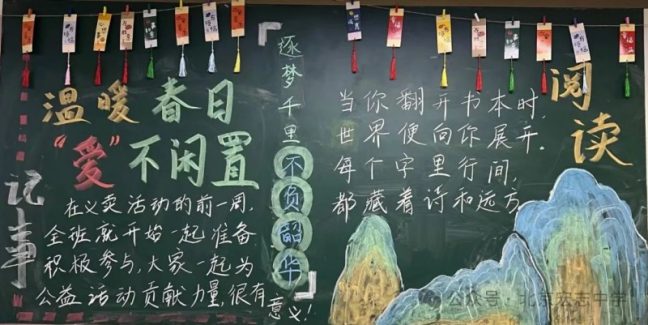 温暖春日
“爱”不闲置
记事
在义卖活动的前一周,
全班就开始一起准备
积极参与,大家一起为
公益活动贡献力量很有
意义!
逐梦千里不负韶华
阅读
当你翻开书本时,
世界便向你展开.
每个字里行间,
都藏着诗和远方
公众号·北京宏志中学